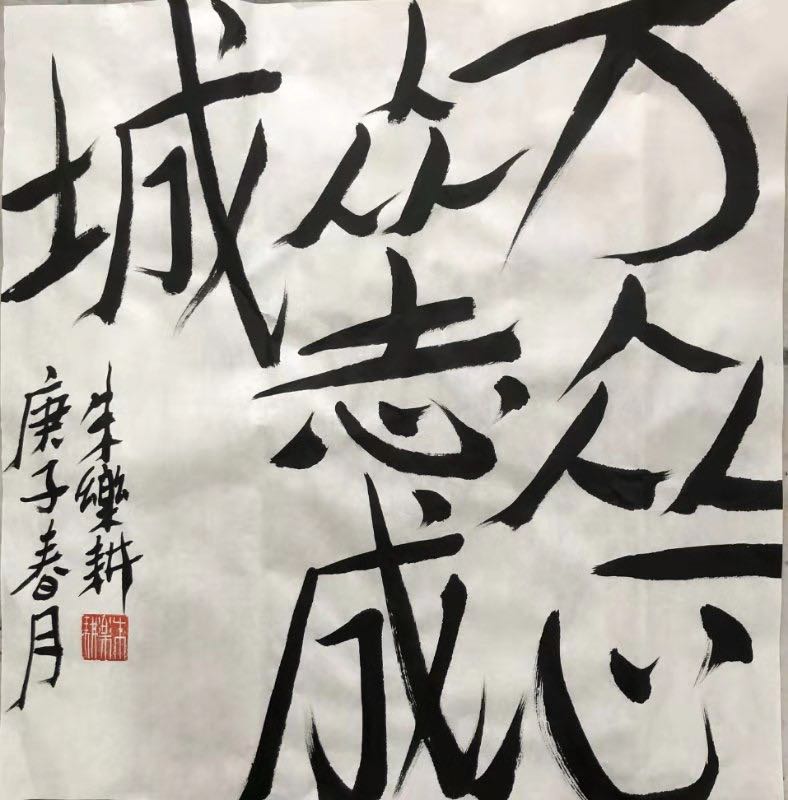 万众一心
众志成
城
朱樂耕
庚子春月
朱樂耕